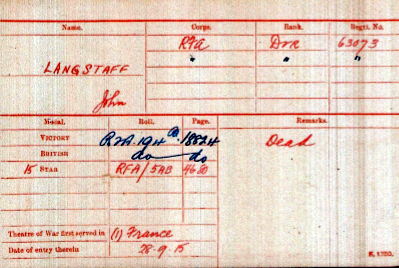 Name. Corps. Rank. Regtl. No.
RFA Dvr 63073
LANGSTAFF " " "
John
Medal. Roll. Page. Remarks.
VICTORY RFA.194 B. 18824 Dead
BRITISH do do
15 STAR RFA/5AB
Theatre of War first served in (1) France
Date of entry therein 28-9-15
K. 1380.